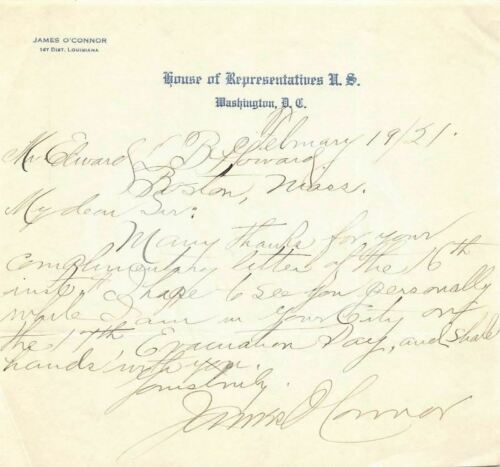 JAMES O'CONNOR
1ST DIST. LOUISIANA
House of Representatives U. S.
Washington, D. C.
February 19/21.
Mr. Edward B. Howard,
Boston, Mass.
My dear Sir:
Many thanks for your
complimentary letter of the 16th
inst. I hope to see you personally
while I am in your City on
the 17th Evacuation Day, and shake
hands with you.
Yours truly,
James O'Connor